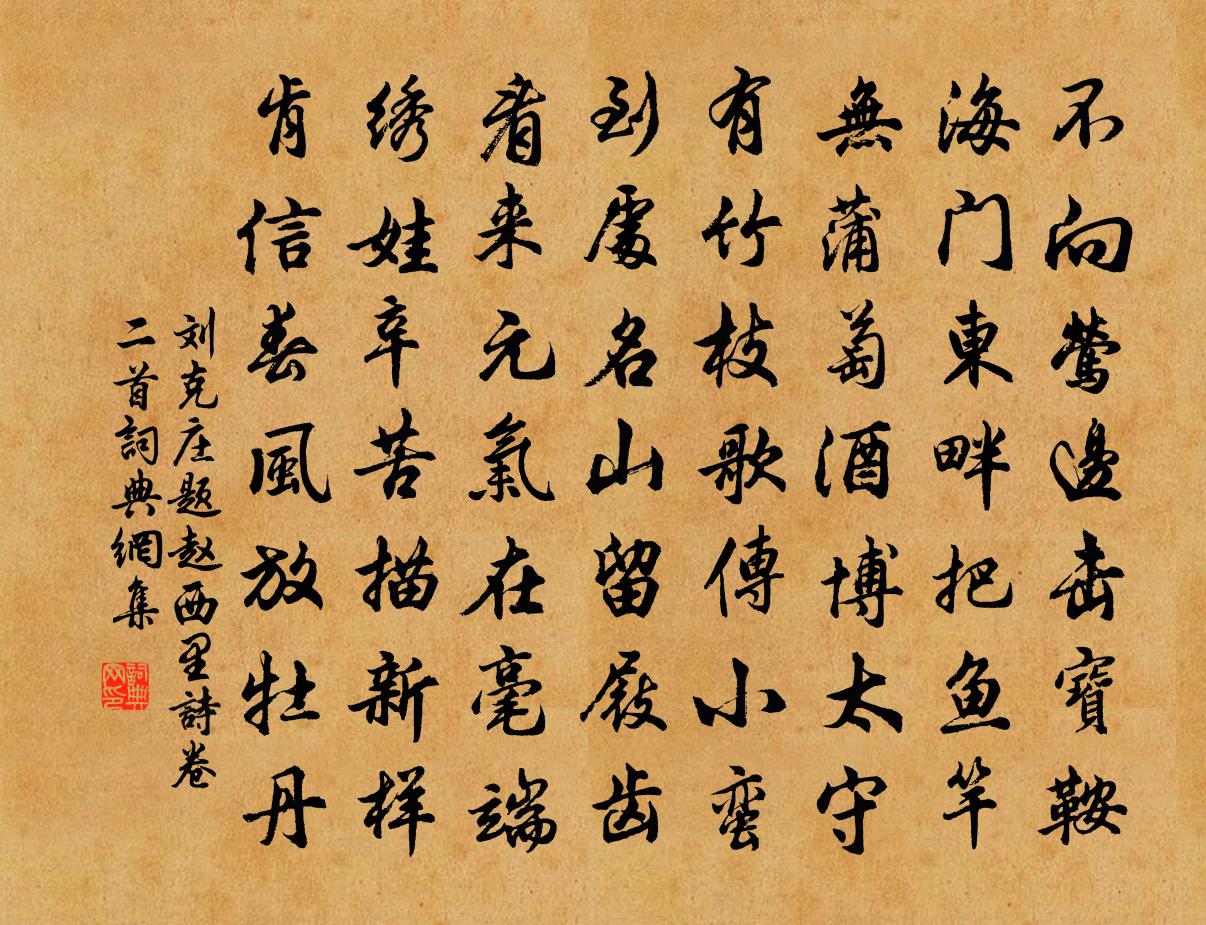 不向莺邊击寶鞍
海门東畔把鱼竿
無蒲萄酒博太守
有竹枝歌傳小蛮
到處名山留屐齿
看来元氣在毫端
绣娃辛苦描新样
肯信春風放牡丹
刘克庄题赵西里詩卷
二首詞典網集
詞典网印